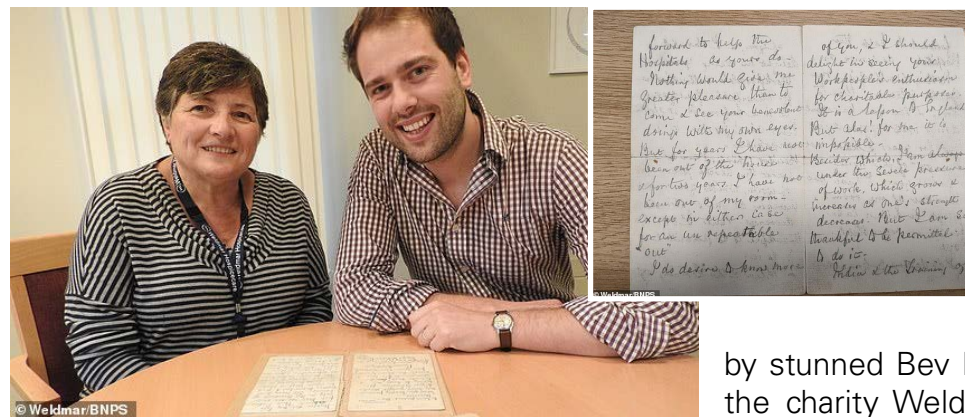 forward to help the
Hospitals as yours do.
Nothing would give me
greater pleasure than to
come & see your benevolent
doings with my own eyes.
But for years I have not
been out of the house &
for two years I have not
been out of my room -
except in either case
for an
"out"
I do desire to know more
of you, & I should
delight in seeing your
Workpeople's enthusiasm
for charitable purposes.
It is a lesson to
But alas! for me it is
impossible.
Besides which, I am always
under the severe pressure
of work, which grows &
increases as one's strength
decreases. But I am so
thankful to be permitted
to do it -
India & the Training of
© Weldmar/BNPS
© Weldmar/BNPS
by stunned Bev
the charity Weld